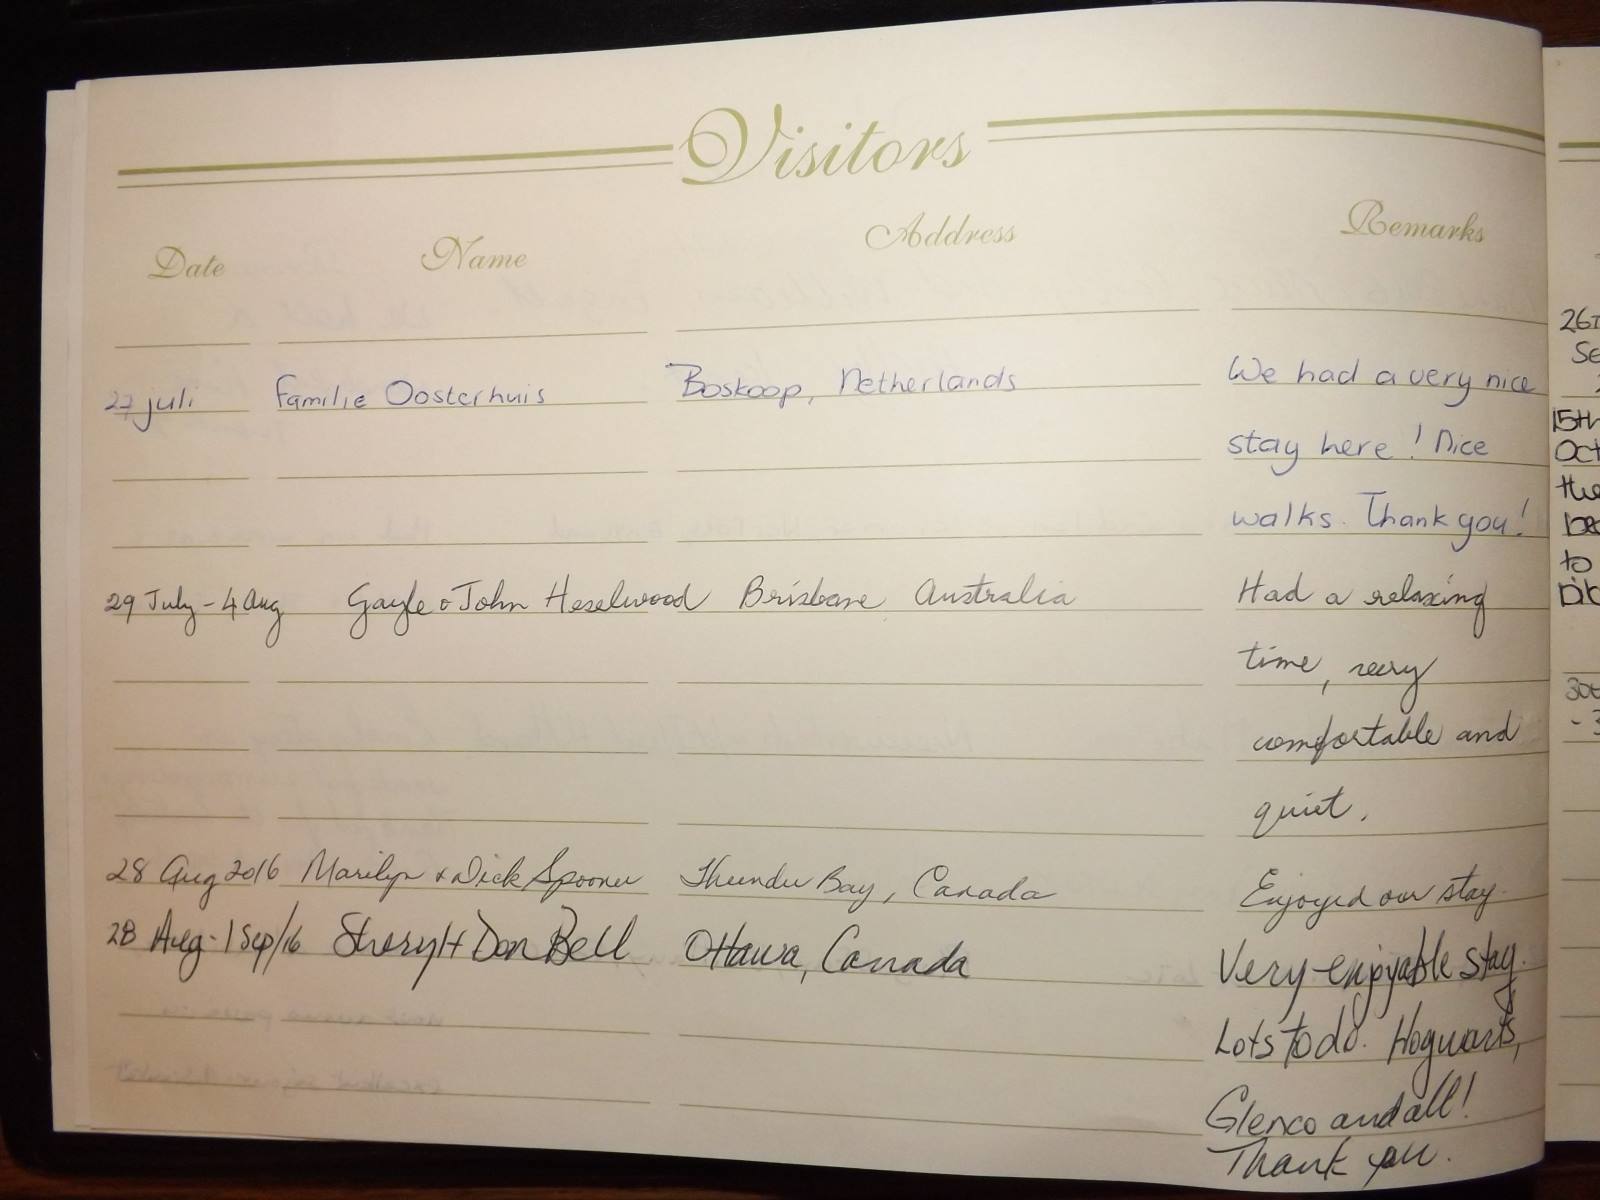 Visitors
Date Name Address Remarks
27 juli Familie Oosterhuis Boskoop, Netherlands We had a very nice
stay here! Nice
walks. Thank you!
29 July - 4 Aug Gayle & John Heselwood Brisbane Australia Had a relaxing
time, very
comfortable and
quiet.
28 Aug 2016 Marilyn & Dick Spooner Thunder Bay, Canada Enjoyed our stay.
28 Aug - 1 Sep/16 Sheryl + Don Bell Ottawa, Canada Very enjoyable stay.
Lots to do. Hogwarts,
Glenco and all!
Thank you.
26T
Se
15th
Oct
the
to
30t
- 3